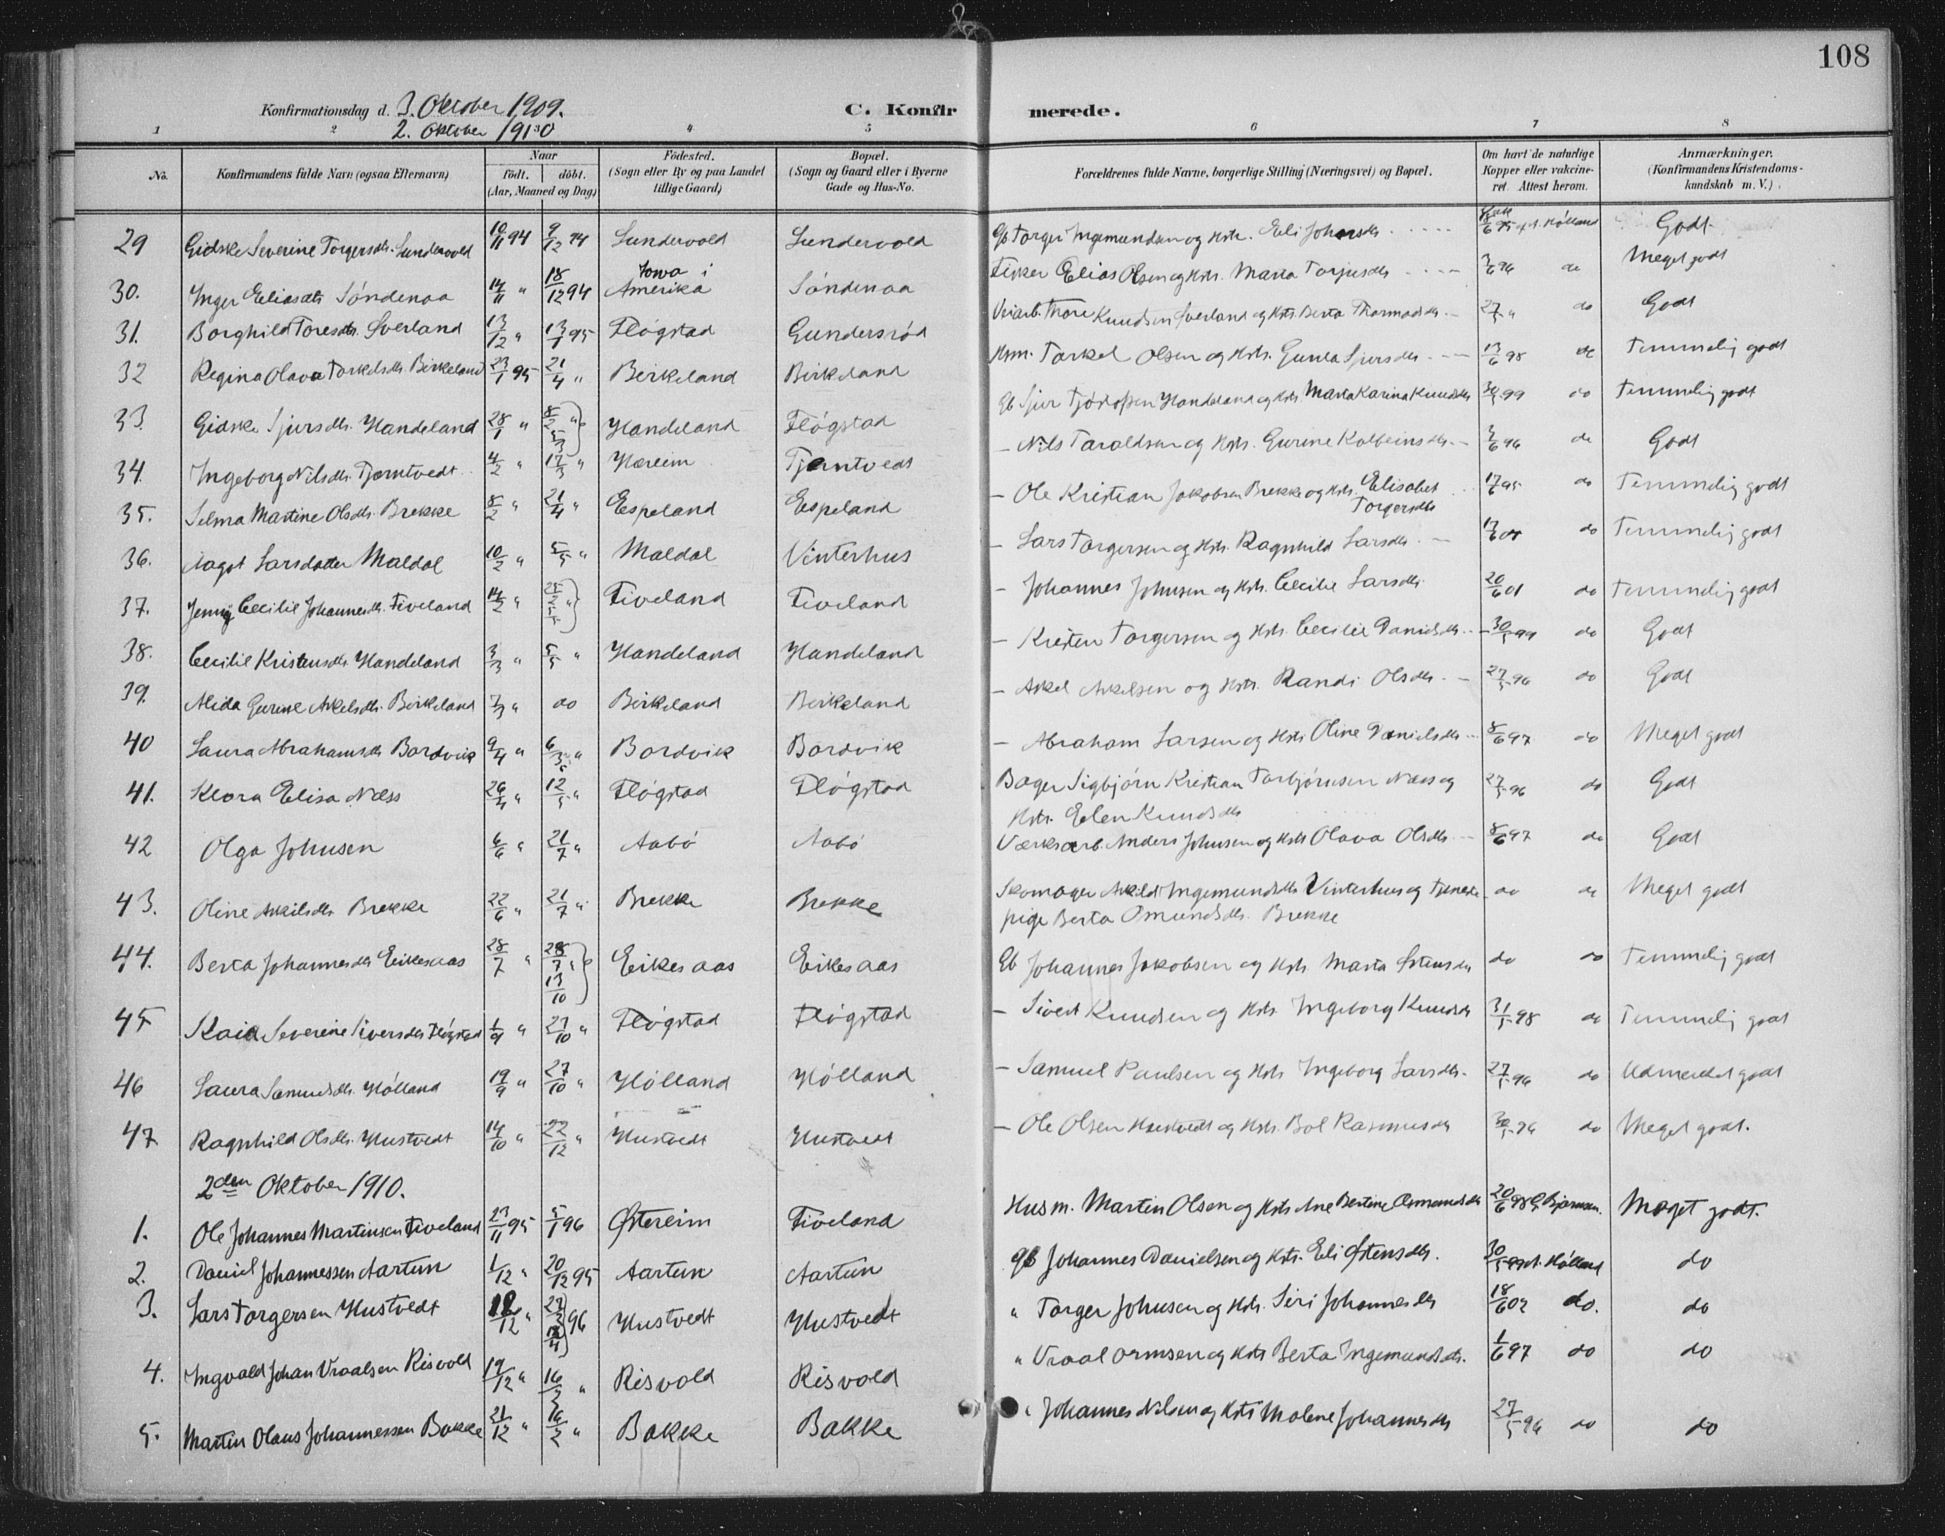 108
Konfirmationsdag d. 3. Oktober 1909. C. Konfirmerede.
2. Oktober 1910
1 2 4 5 6 7 8
No. Konfirmandens fulde Navn (ogsaa Efternavn) Naar født. døbt. (Aar, Maaned og Dag) Fødested. (Sogn eller By og paa Landet tillige Gaard) Bopæl. (Sogn og Gaard eller i Byerne Gade og Hus-No. Forældrenes fulde Navne, borgerlige Stilling (Næringsvei) og Bopæl. Om havt de naturlige Kopper eller vakcineret. Attest herom. Anmærkninger. (Konfirmandens Kristendomskundskab m. V.)
29 Gidske Severine Torgersdtr. Sundervold 10/11 94 9/12 94 Sundervold Sundervold Gb Torger Ingemundsen og Hstr. Eli Johnsdtr. Hólland Godt.
30. Inger Eliasdtr Söndenaa 14/11 " 18/12 94 Iowa i Amerika Söndenaa Elias Olsen og Hstr. Marta Torjusdtr 3/6 96 do Meget godt
31. Borghild Toresdtr. Øverland 13/12 " 13/1 95 Flógstad Gundersród Thore Knudsen Øverland og Hstr Berta Thormodsdtr. 27/5 " do Godt
32 Regina Olava Torkelsdtr Birkeland 23/1 95 21/4 " Birkeland Birkeland Hsm. Torkel Olsen og Hstr. Gunla Sjursdtr. 13/6 98 do Temmelig godt
33. Gidske Sjursdtr. Handeland 28/1 " 8/2 " 5/3 Handeland Flógstad Gb Sjur Handeland og Hstr. Marta Karina Knudsdtr 30/5 99 do Temmelig godt
34. Ingeborg Nilsdtr. Tjerntvedt 4/2 " 17/3 " Hæreim Tjerntvedt — Nils Taraldsen og Hstr. Gurine Kolbeinsdtr. 3/6 96 do Godt
35. Selma Martine Olsdtr. Brekke 8/2 " 21/4 " Espeland Espeland — Ole Kristian Jakobsen Brekke og Hstr. Elisabet Torgersdtr 17/6 95 do Temmelig godt
36. Aagot Larsdatter Maldal 10/2 " 5/5 " Maldal Vinterhus — Lars Torgersen og Hstr. Ragnhild Larsdtr. do Temmelig godt
37. Jenny Cecilie Johannesdtr. Tiveland 14/2 " Tiveland Tiveland — Johannes Johnsen og Hstr. Cecilie Larsdtr. 20/6 01 do Temmelig godt
38. Cecilie Kristensdtr. Handeland 3/3 " 5/5 " Handeland Handeland — Kristen Torgersen og Hstr. Cecilie Danielsdtr. 30/5 99 do Godt
39. Alida Gurine Askelsdtr. Birkeland 7/3 " do Birkeland Birkeland — Askel Askelsen og Hstr. Randi Olsdtr. 27/5 96 do Godt
40 Laura Abrahamsdtr Bordvik 9/4 " Bordvik Bordvik — Abraham Larsen og Hstr Oline Danielsdtr 8/6 97 do Meget godt
41. Klara Elisa Næss 26/4 " 12/5 " Flógstad Flógstad Bager Sigbjörn Kristian Torbjörnsen Næss og Hstr. Elen Knudsdtr 27/5 96 do Godt
42 Olga Johnsen 6/6 " 21/7 " Aabö Aabö Værksarb. Anders Johnsen og Hstr Olava Olsdtr. 8/6 97 do Godt
43. Oline Askilsdtr Brekke 22/6 " 21/7 " Brekke Brekke Skomager Askild Vinterhus og Tjenestepige Berta Omundsdtr. Brekke do do Meget godt
44. Berta Johannesdtr Eikesaas 28/7 " 28/7 " 13/10 Eikesaas Eikesaas Gb Johannes Jakobsen og Hstr. Marta Østensdtr do do Temmelig godt
45 Kaia Severine Siversdtr Flógstad 1/9 " 27/10 " Flógstad Flógstad — Sivert Knudsen og Hstr Ingeborg Knudsdtr 31/5 98 do Temmelig godt
46 Laura Samuelsdtr. Hólland 19/9 " 27/10 " Hólland Hólland — Samuel Paulsen og Hstr Ingeborg Larsdtr. 27/5 96 do Udmerket godt
47. Ragnhild Olsdtr. Hustvedt 14/10 " 22/12 " Hustvedt Hustvedt — Ole Olsen Hustvedt og Hstr. Bol Rasmusdtr 30/5 96 do Meget godt.
2den Oktober 1910.
1. Ole Johannes Martinsen Tiveland 23/11 95 5/1 96 Østereim Tiveland Husm. Martin Olsen og Hstr Ane Bertine Osmundsdtr 20/6 98 G. Bjørnsen. Meget godt.
2. Daniel Johannessen Aartun 1/12 " 20/12 95 Aartun Aartun Gb Johannes Danielsen og Hstr. Eli Østensdtr. 30/5 99 Hólland do
3. Lars Torgersen Hustvedt 12/12 " 96 Hustvedt Hustvedt " Torger Johnsen og Hstr. Siri Johannesdtr 18/6 02 do. do
4. Ingvald Johan Vraalsen Risvold 19/12 " 16/2 " Risvold Risvold " Vraal Ormsen og Hstr Berta Ingemundsdtr. 1/6 97 do do
5. Martin Olaus Johannessen Bakke 21/12 " 16/2 " Bakke Bakke " Johannes Nilsen og Hstr Malene Johannesdtr 27/5 96 do do